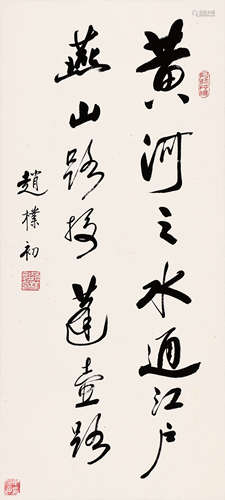 黄河之水通江户
燕山路接蓬壶路
趙樸初